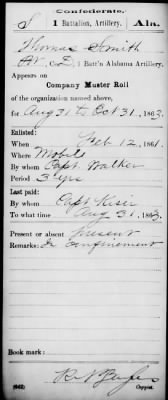 Confederate.
S | 1 Battalion, Artillery. | Ala.
Thomas Smith
Co. D, 1 Batt'n Alabama Artillery.
Appears on
Company Muster Roll
of the organization named above,
for Aug 31 to Oct 31, 1863.
Enlisted:
When Feb 12, 1861.
Where Mobile
By whom Capt Walker
Period 3 yrs
Last paid:
By whom Capt
To what time Aug 31, 1863.
Present or absent Present
Remarks: In Confinement
Book mark:
(642)
Copyist.